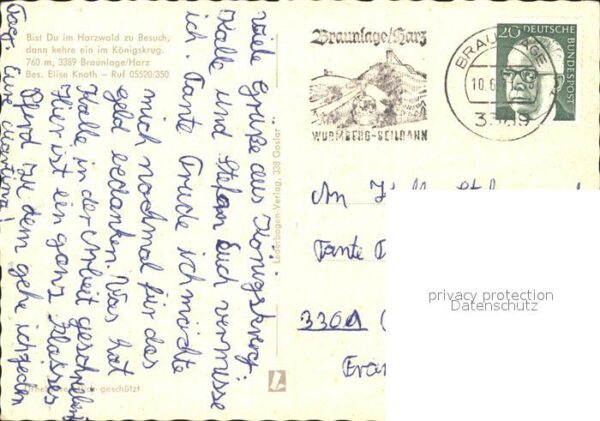 Bist Du im Harzwald zu Besuch,
dann kehre ein im Königskrug.
760 m, 3389 Braunlage/Harz
Bes. Elise Knath - Ruf 05520/350
Viele Grüße aus Königskrug.
Kalle und Stefan Euch vermisse
ich. Tante Trude ich möchte
mich nochmal für das
geld bedanken. Was hat
Kalle in der Arbeit geschrieben
Hier ist ein ganz klasses
Pferd zu dem gehe ich jeden
Tag. Eure Martina!
geschützt
Lederbogen-Verlag, 338 Goslar
Braunlage/Harz
WURMBERG-SEILBAHN
BRAUNLAGE
10.6.
3389
20
DEUTSCHE
BUNDESPOST
An
Tante
3301
privacy protection
Datenschutz